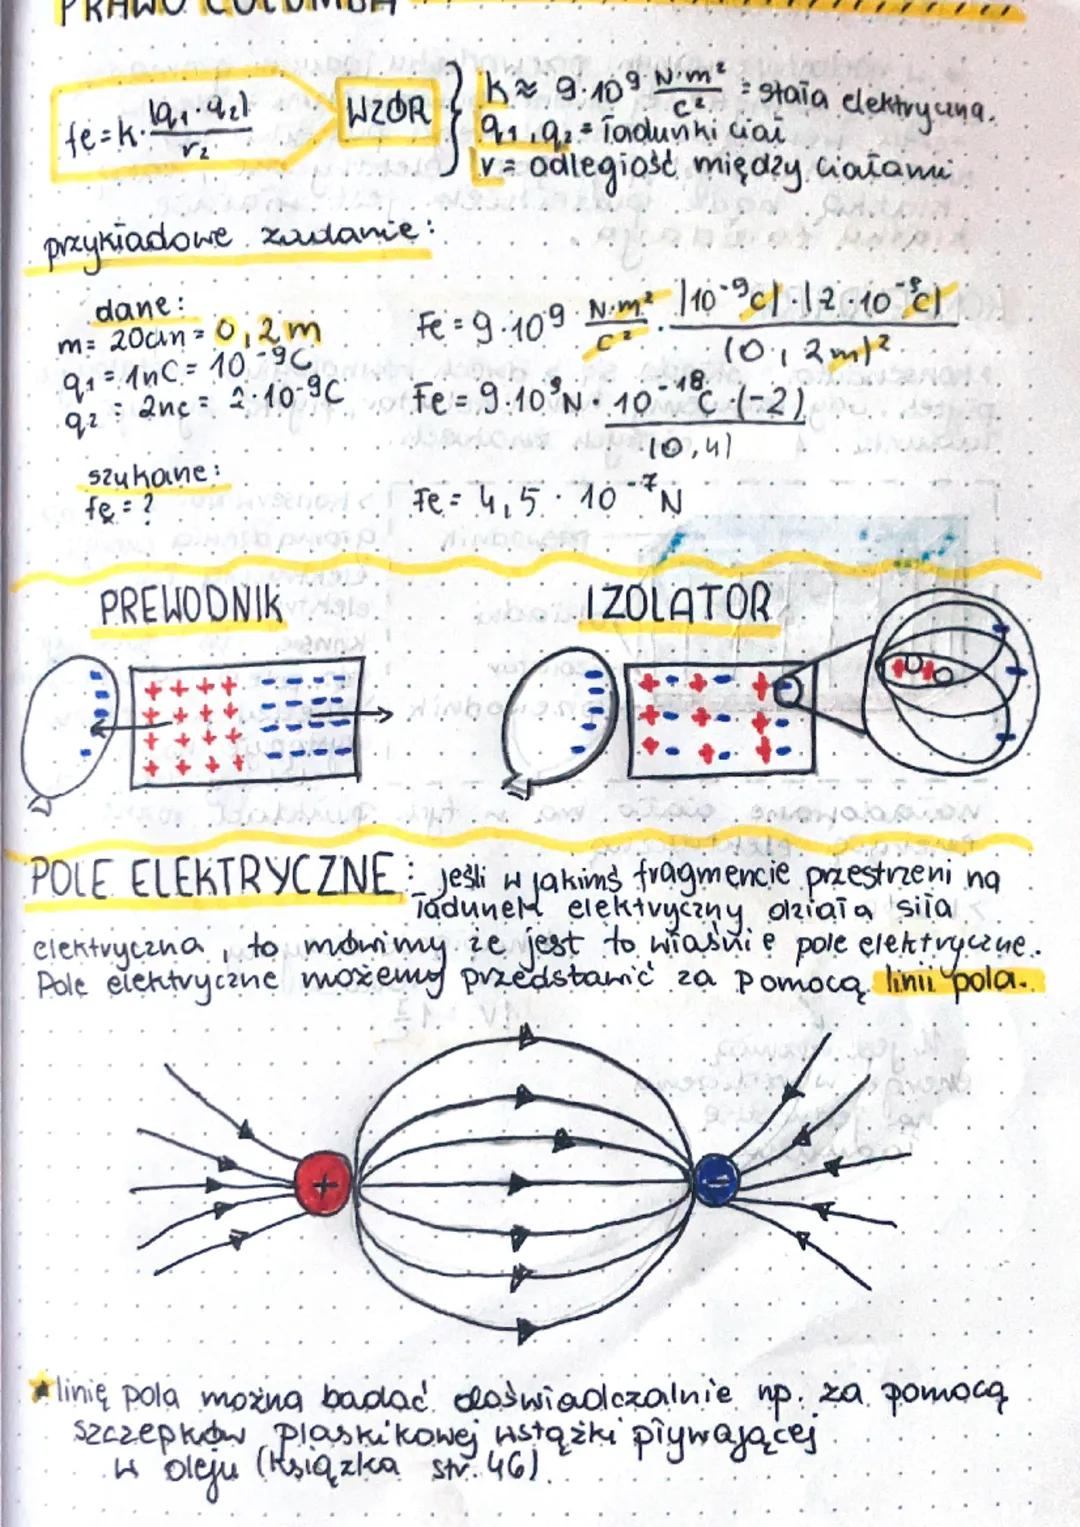 PRAWO COLOMBA
fe=k·|q₁·q₂|/r₂
WZÓR
k≈ 9·10⁹ N·m²/C² = stała elektryczna.
q₁,q₂= ładunki ciał
r= odległość między ciałami
przykładowe zadanie:
dane:
m= 20cm = 0,2m
q₁= 1nC = 10⁻⁹C
q₂ = 2nc = 2·10⁻⁹C
szukane:
fe = ?
Fe = 9·10⁹ N·m²/C² · |10⁻⁹C|·|2·10⁻⁹C|/(0,2m)²
Fe = 9·10⁹N · 10⁻¹⁸C·(-2)/(0,4)
Fe = 4,5 · 10⁻⁷N
PREWODNIK
IZOLATOR
POLE ELEKTRYCZNE: jeśli w jakimś fragmencie przestrzeni na
ładunek elektryczny działa siła
elektryczna, to mówimy że jest to właśnie pole elektryczne.
Pole elektryczne możemy przedstawić za pomocą linii pola.
+
-
linię pola można badać doświadczalnie np. za pomocą
szczepków plaskikowej wstążki pływającej
w oleju (książka str. 46)